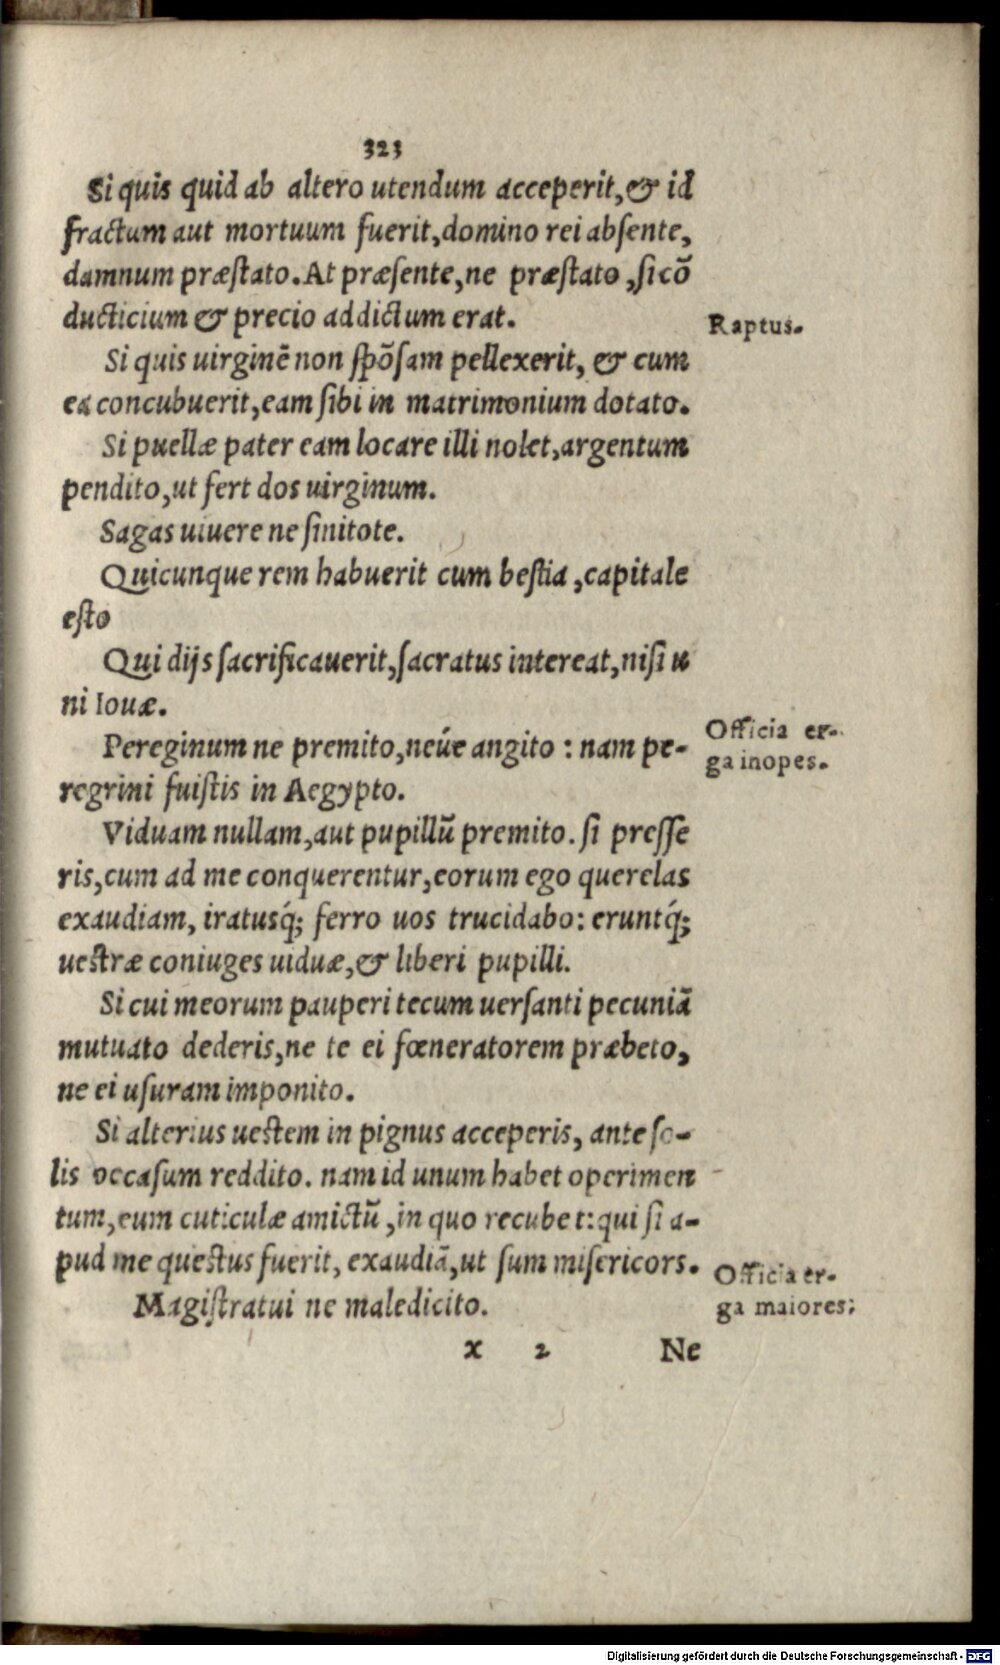 323
Si quis quid ab altero utendum acceperit, & id
fractum aut mortuum fuerit, domino rei absente,
damnum præstato. At præsente, ne præstato, si cō
ducticium & precio addictum erat.
Raptus.
Si quis uirginē non spōsam pellexerit, & cum
ea concubuerit, eam sibi in matrimonium dotato.
Si puellæ pater eam locare illi nolet, argentum
pendito, ut fert dos uirginum.
Sagas uiuere ne sinitote.
Quicunque rem habuerit cum bestia, capitale
esto
Qui dijs sacrificauerit, sacratus intereat, nisi u
ni Iouæ.
Officia er-
ga inopes.
Pereginum ne premito, neúe angito : nam pe-
regrini fuistis in Aegypto.
Viduam nullam, aut pupillū premito. si presse
ris, cum ad me conquerentur, eorum ego querelas
exaudiam, iratusq́; ferro uos trucidabo: eruntq́;
uestræ coniuges uiduæ, & liberi pupilli.
Si cui meorum pauperi tecum uersanti pecuniā
mutuato dederis, ne te ei fœneratorem præbeto,
ne ei usuram imponito.
Si alterius uestem in pignus acceperis, ante so-
lis occasum reddito. nam id unum habet operimen
tum, eum cuticulæ amictū, in quo recubet: qui si a-
pud me questus fuerit, exaudiā, ut sum misericors.
Officia er-
ga maiores;
Magistratui ne maledicito.
x 2 Ne
Digitalisierung gefördert durch die Deutsche Forschungsgemeinschaft - DFG